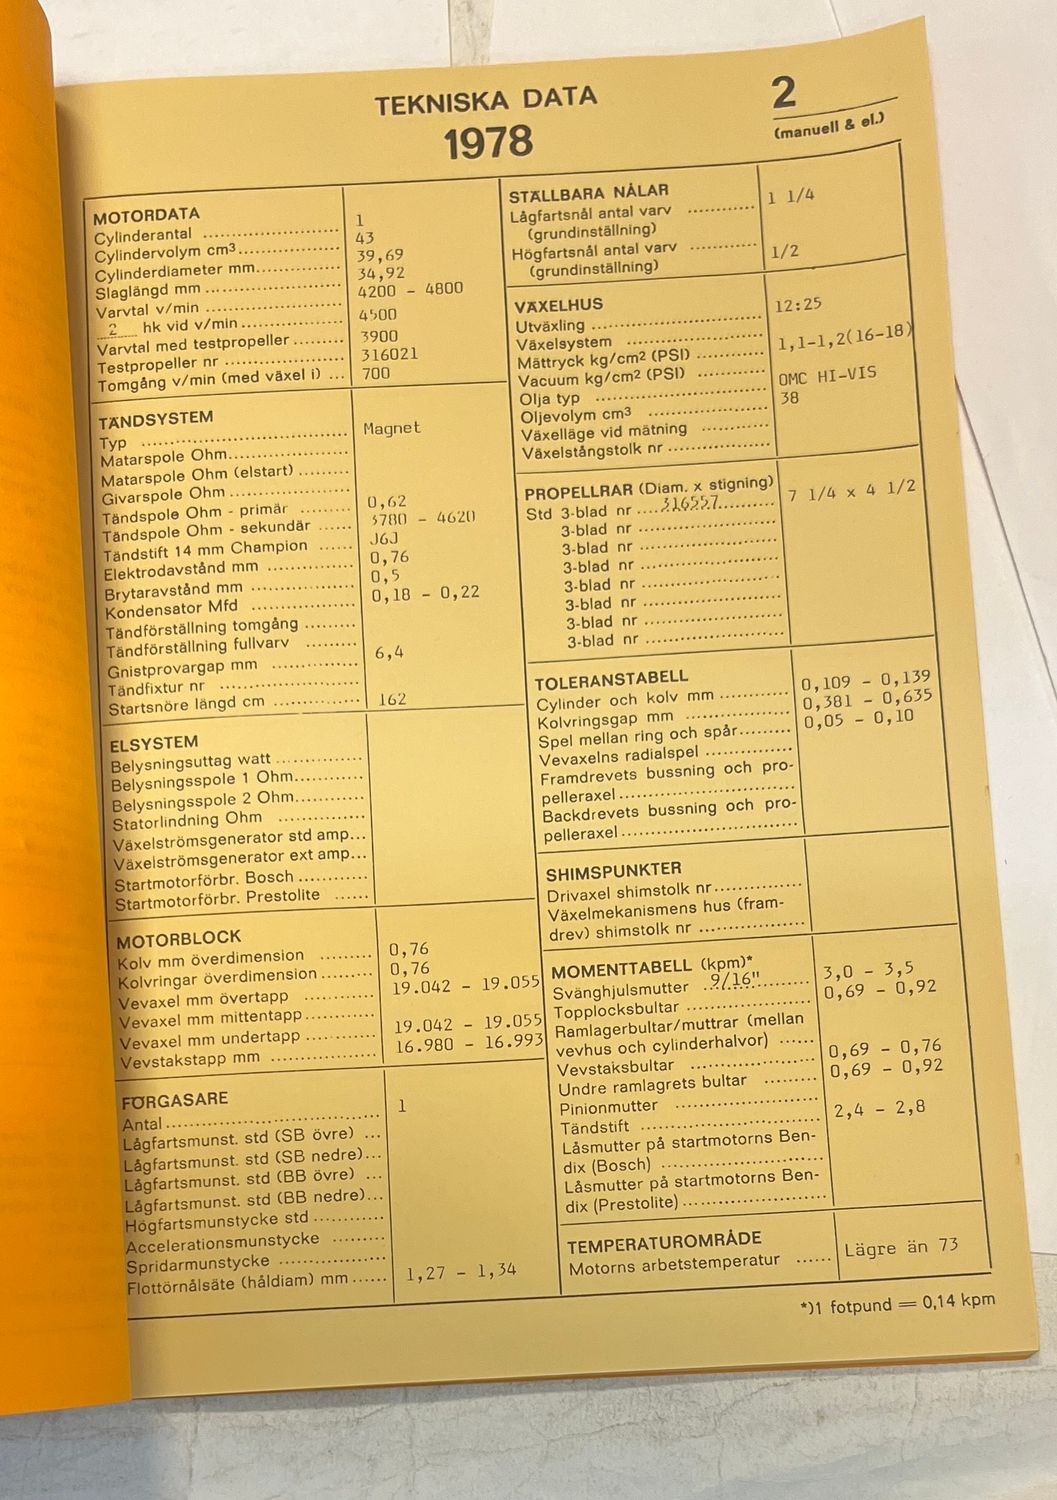 TEKNISKA DATA
1978
2
(manuell & el.)
MOTORDATA
Cylinderantal 1
Cylindervolym cm³ 43
Cylinderdiameter mm 39,69
Slaglängd mm 34,92
Varvtal v/min 4200 - 4800
2 hk vid v/min 4500
Varvtal med testpropeller 3900
Testpropeller nr 316021
Tomgång v/min (med växel i) ... 700
TÄNDSYSTEM
Typ Magnet
Matarspole Ohm
Matarspole Ohm (elstart)
Givarspole Ohm
Tändspole Ohm - primär 0,62
Tändspole Ohm - sekundär 3780 - 4620
Tändstift 14 mm Champion J6J
Elektrodavstånd mm 0,76
Brytaravstånd mm 0,5
Kondensator Mfd 0,18 - 0,22
Tändförställning tomgång
Tändförställning fullvarv
Gnistprovargap mm 6,4
Tändfixtur nr
Startsnöre längd cm 162
ELSYSTEM
Belysningsuttag watt
Belysningsspole 1 Ohm
Belysningsspole 2 Ohm
Statorlindning Ohm
Växelströmsgenerator std amp...
Växelströmsgenerator ext amp...
Startmotorförbr. Bosch
Startmotorförbr. Prestolite
MOTORBLOCK
Kolv mm överdimension 0,76
Kolvringar överdimension 0,76
Vevaxel mm övertapp 19.042 - 19.055
Vevaxel mm mittentapp
Vevaxel mm undertapp 19.042 - 19.055
Vevstakstapp mm 16.980 - 16.993
FÖRGASARE
Antal 1
Lågfartsmunst. std (SB övre) ...
Lågfartsmunst. std (SB nedre)...
Lågfartsmunst. std (BB övre) ...
Lågfartsmunst. std (BB nedre)...
Högfartsmunstycke std
Accelerationsmunstycke
Spridarmunstycke
Flottörnålsäte (håldiam) mm 1,27 - 1,34
STÄLLBARA NÅLAR
Lågfartsnål antal varv 1 1/4
(grundinställning)
Högfartsnål antal varv 1/2
(grundinställning)
VÄXELHUS
Utväxling 12:25
Växelsystem
Mättryck kg/cm² (PSI) 1,1-1,2(16-18)
Vacuum kg/cm² (PSI)
Olja typ OMC HI-VIS
Oljevolym cm³ 38
Växelläge vid mätning
Växelstångstolk nr
PROPELLRAR (Diam. x stigning)
Std 3-blad nr 316557 7 1/4 x 4 1/2
3-blad nr
3-blad nr
3-blad nr
3-blad nr
3-blad nr
3-blad nr
3-blad nr
TOLERANSTABELL
Cylinder och kolv mm 0,109 - 0,139
Kolvringsgap mm 0,381 - 0,635
Spel mellan ring och spår 0,05 - 0,10
Vevaxelns radialspel
Framdrevets bussning och pro-
pelleraxel
Backdrevets bussning och pro-
pelleraxel
SHIMSPUNKTER
Drivaxel shimstolk nr
Växelmekanismens hus (fram-
drev) shimstolk nr
MOMENTTABELL (kpm)*
Svänghjulsmutter 9/16" 3,0 - 3,5
Topplocksbultar 0,69 - 0,92
Ramlagerbultar/muttrar (mellan
vevhus och cylinderhalvor)
Vevstaksbultar 0,69 - 0,76
Undre ramlagrets bultar 0,69 - 0,92
Pinionmutter
Tändstift 2,4 - 2,8
Låsmutter på startmotorns Ben-
dix (Bosch)
Låsmutter på startmotorns Ben-
dix (Prestolite)
TEMPERATUROMRÅDE
Motorns arbetstemperatur Lägre än 73
*)1 fotpund = 0,14 kpm